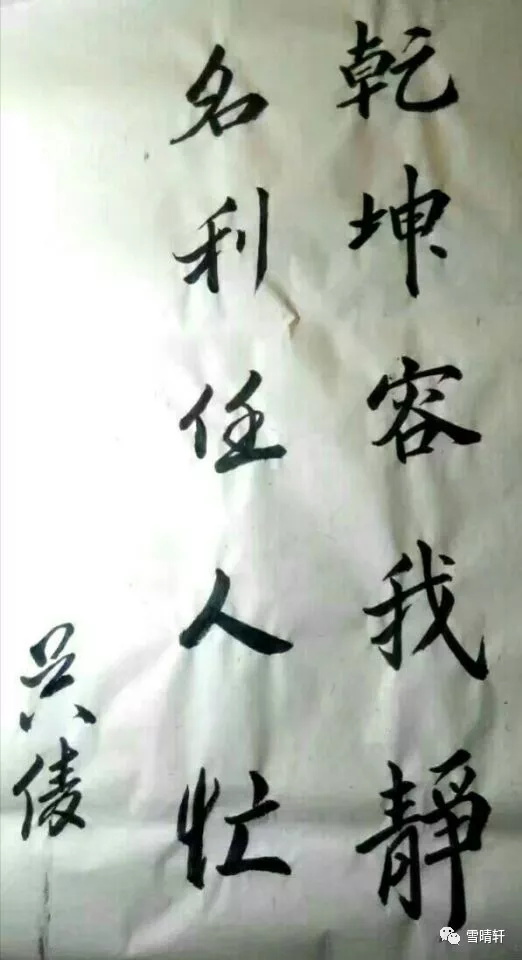 乾坤容我靜
名利任人忙
吳倰
雪晴轩